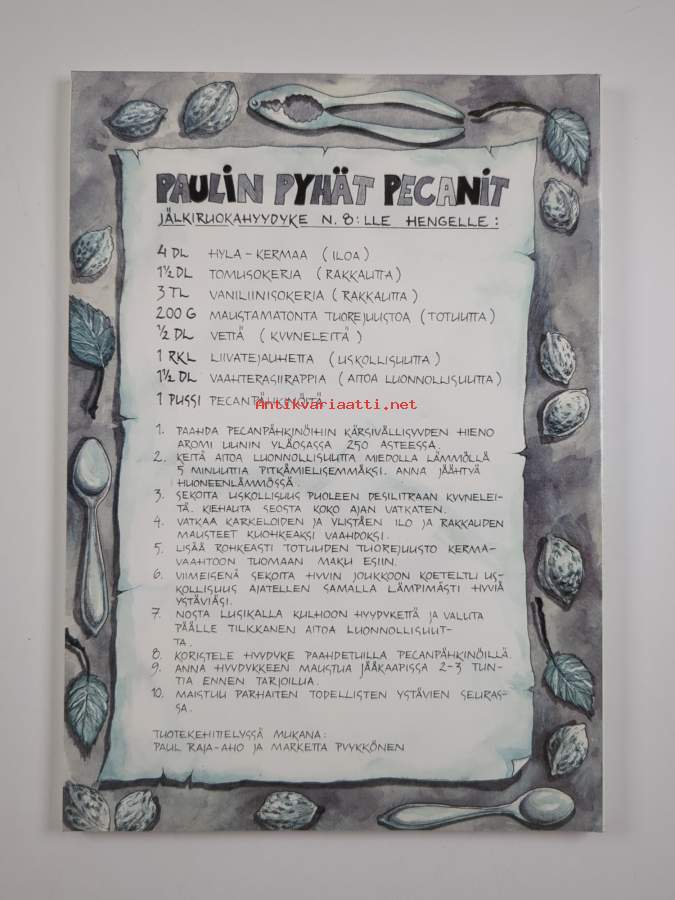 PAULIN PYHÄT PECANIT
JÄLKIRUOKAHYYDYKE N. 8:LLE HENGELLE:
4 DL HYLA-KERMAA (ILOA)
1½ DL TOMUSOKERIA (RAKKAUTTA)
3 TL VANILIINISOKERIA (RAKKAUTTA)
200 G MAUSTAMATONTA TUOREJUUSTOA (TOTUUTTA)
½ DL VETTÄ (KYYNELEITÄ)
1 RKL LIIVATEJAUHETTA (USKOLLISUUTTA)
1½ DL VAAHTERASIIRAPPIA (AITOA LUONNOLLISUUTTA)
1 PUSSI PECANPÄHKINÖITÄ
Antikvariaatti.net
1. PAAHDA PECANPÄHKINÖIHIN KÄRSIVÄLLISYYDEN HIENO
AROMI UUNIN YLÄOSASSA 250 ASTEESSA.
2. KEITÄ AITOA LUONNOLLISUUTTA MIEDOLLA LÄMMÖLLÄ
5 MINUUTTIA PITKÄMIELISEMMÄKSI. ANNA JÄÄHTYÄ
HUONEENLÄMMÖSSÄ.
3. SEKOITA USKOLLISUUS PUOLEEN DESILITRAAN KYYNELEI-
TÄ. KIEHAUTA SEOSTA KOKO AJAN VATKATEN.
4. VATKAA KARKELOIDEN JA YLISTÄEN ILO JA RAKKAUDEN
MAUSTEET KUOHKEAKSI VAAHDOKSI.
5. LISÄÄ ROHKEASTI TOTUUDEN TUOREJUUSTO KERMA-
VAAHTOON TUOMAAN MAKU ESIIN.
6. VIIMEISENÄ SEKOITA HYVIN JOUKKOON KOETELTU US-
KOLLISUUS AJATELLEN SAMALLA LÄMPIMÄSTI HYVIÄ
YSTÄVIÄSI.
7. NOSTA LUSIKALLA KULHOON HYYDYKETTÄ JA VALUTA
PÄÄLLE TILKKANEN AITOA LUONNOLLISUUT-
TA.
8. KORISTELE HYYDYKE PAAHDETUILLA PECANPÄHKINÖILLÄ.
9. ANNA HYYDYKKEEN MAUSTUA JÄÄKAAPISSA 2-3 TUN-
TIA ENNEN TARJOILUA.
10. MAISTUU PARHAITEN TODELLISTEN YSTÄVIEN SEURAS-
SA.
TUOTEKEHITTELYSSÄ MUKANA:
PAUL RAJA-AHO JA MARKETTA PYYKKÖNEN